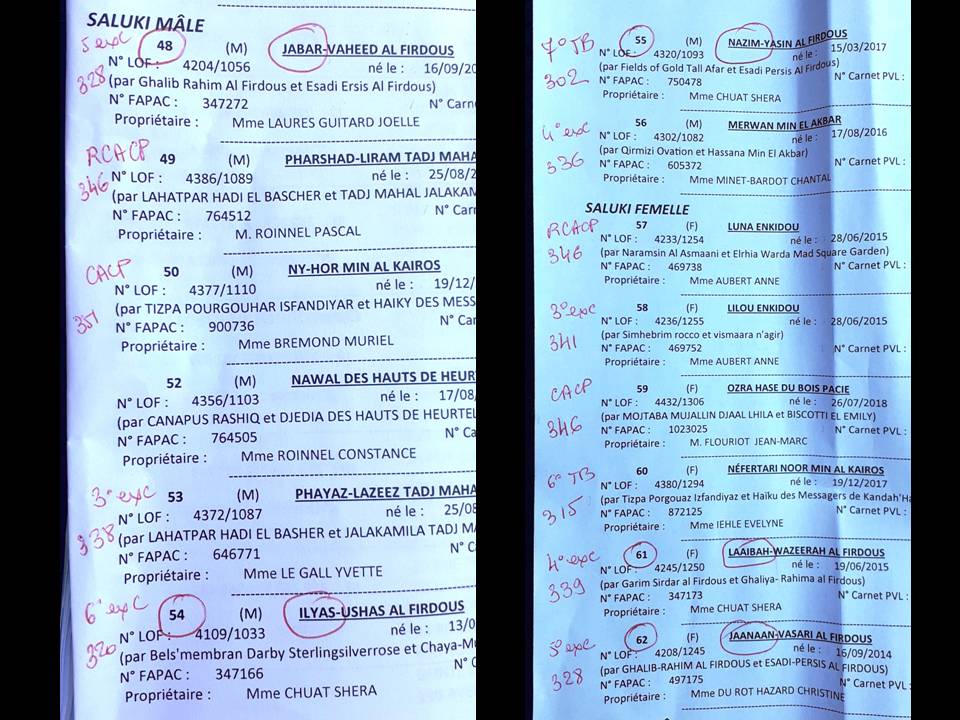 SALUKI MÂLE
5 exc 48 (M) JABAR-VAHEED AL FIRDOUS
328 N° LOF : 4204/1056 né le : 16/09/20
(par Ghalib Rahim Al Firdous et Esadi Ersis Al Firdous)
N° FAPAC : 347272 N° Carne
Propriétaire : Mme LAURES GUITARD JOELLE
RCACP 49 (M) PHARSHAD-LIRAM TADJ MAHA
346 N° LOF : 4386/1089 né le : 25/08/2
(par LAHATPAR HADI EL BASCHER et TADJ MAHAL JALAKAM
N° FAPAC : 764512 N° Carn
Propriétaire : M. ROINNEL PASCAL
CACP 50 (M) NY-HOR MIN AL KAIROS
351 N° LOF : 4377/1110 né le : 19/12/
(par TIZPA POURGOUHAR ISFANDIYAR et HAIKY DES MESS
N° FAPAC : 900736 N° Car
Propriétaire : Mme BREMOND MURIEL
52 (M) NAWAL DES HAUTS DE HEURT
N° LOF : 4356/1103 né le : 17/08/
(par CANAPUS RASHIQ et DJEDIA DES HAUTS DE HEURTEL
N° FAPAC : 764505 N° Ca
Propriétaire : Mme ROINNEL CONSTANCE
3° exc 53 (M) PHAYAZ-LAZEEZ TADJ MAHA
338 N° LOF : 4372/1087 né le : 25/08
(par LAHATPAR HADI EL BASHER et JALAKAMILA TADJ M
N° FAPAC : 646771 N° C
Propriétaire : Mme LE GALL YVETTE
6° exc 54 (M) ILYAS-USHAS AL FIRDOUS
320 N° LOF : 4109/1033 né le : 13/0
(par Bels'membran Darby Sterlingsilverrose et Chaya-M
N° FAPAC : 347166 N° C
Propriétaire : Mme CHUAT SHERA
7° TB 55 (M) NAZIM-YASIN AL FIRDOUS
302 N° LOF : 4320/1093 né le : 15/03/2017
(par Fields of Gold Tall Afar et Esadi Persis Al Firdous)
N° FAPAC : 750478 N° Carnet PVL :
Propriétaire : Mme CHUAT SHERA
4° exc 56 (M) MERWAN MIN EL AKBAR
336 N° LOF : 4302/1082 né le : 17/08/2016
(par Qirmizi Ovation et Hassana Min El Akbar)
N° FAPAC : 605372 N° Carnet PVL :
Propriétaire : Mme MINET-BARDOT CHANTAL
SALUKI FEMELLE
RCACP 57 (F) LUNA ENKIDOU
346 N° LOF : 4233/1254 né le : 28/06/2015
(par Naramsin Al Asmaani et Elrhia Warda Mad Square Garden)
N° FAPAC : 469738 N° Carnet PVL :
Propriétaire : Mme AUBERT ANNE
3° exc 58 (F) LILOU ENKIDOU
341 N° LOF : 4236/1255 né le : 28/06/2015
(par Simhebrim rocco et vismaara n'agir)
N° FAPAC : 469752 N° Carnet PVL :
Propriétaire : Mme AUBERT ANNE
CACP 59 (F) OZRA HASE DU BOIS PACIE
346 N° LOF : 4432/1306 né le : 26/07/2018
(par MOJTABA MUJALLIN DJAAL LHILA et BISCOTTI EL EMILY)
N° FAPAC : 1023025 N° Carnet PVL :
Propriétaire : M. FLOURIOT JEAN-MARC
6° TB 60 (F) NÉFERTARI NOOR MIN AL KAIROS
315 N° LOF : 4380/1294 né le : 19/12/2017
(par Tizpa Porgouaz Izfandiyaz et Haïku des Messagers de Kandah'Ha
N° FAPAC : 872125 N° Carnet PVL :
Propriétaire : Mme IEHLE EVELYNE
4° exc 61 (F) LAAIBAH-WAZEERAH AL FIRDOUS
339 N° LOF : 4245/1250 né le : 19/06/2015
(par Garim Sirdar al Firdous et Ghaliya- Rahima al Firdous)
N° FAPAC : 347173 N° Carnet PVL :
Propriétaire : Mme CHUAT SHERA
5° exc 62 (F) JAANAAN-VASARI AL FIRDOUS
328 N° LOF : 4208/1245 né le : 16/09/2014
(par GHALIB-RAHIM AL FIRDOUS et ESADI-PERSIS AL FIRDOUS)
N° FAPAC : 497175 N° Carnet PVL :
Propriétaire : Mme DU ROT HAZARD CHRISTINE